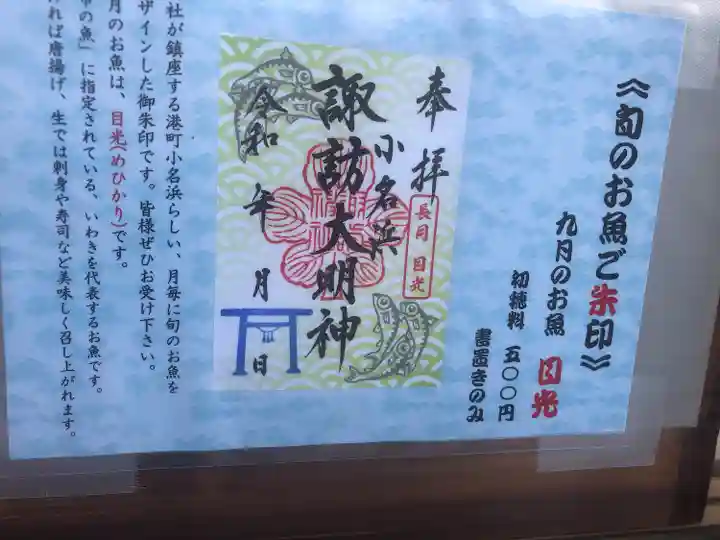 《旬のお魚ご朱印》
九月のお魚 目光
初穂料 五〇〇円
書置きのみ
奉拝
長月 目光
小名浜
諏訪大明神
令和 年 月 日
社が鎮座する港町小名浜らしい、月毎に旬のお魚を
ザインした御朱印です。皆様ぜひお受け下さい。
月のお魚は、目光(めひかり)です。
の魚」に指定されている、いわきを代表するお魚です。
れば唐揚げ、生では刺身や寿司など美味しく召し上がれます。